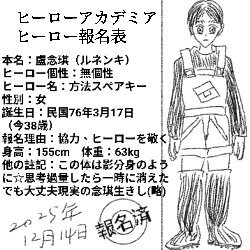 ヒーローアカデミア
ヒーロー報名表
本名：盧念琪（ルネンキ）
ヒーロー個性：無個性
ヒーロー名：方法スペアキー
性別：女
誕生日：民国76年3月17日
（今38歳）
報名理由：協力、ヒーローを敬く
身高：155cm　体重：63kg
他の註記：この体は影分身のよう
に☆思考過量したら一時に消えた
でも大丈夫現実の念琪生きし(略)
2025年
12月14日
報名済